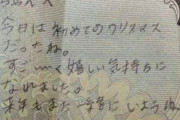 今日は初めてのクリスマス
だったね。
すご〜く嬉しい気持ちに
なれました。
来年もまた一緒にいようね